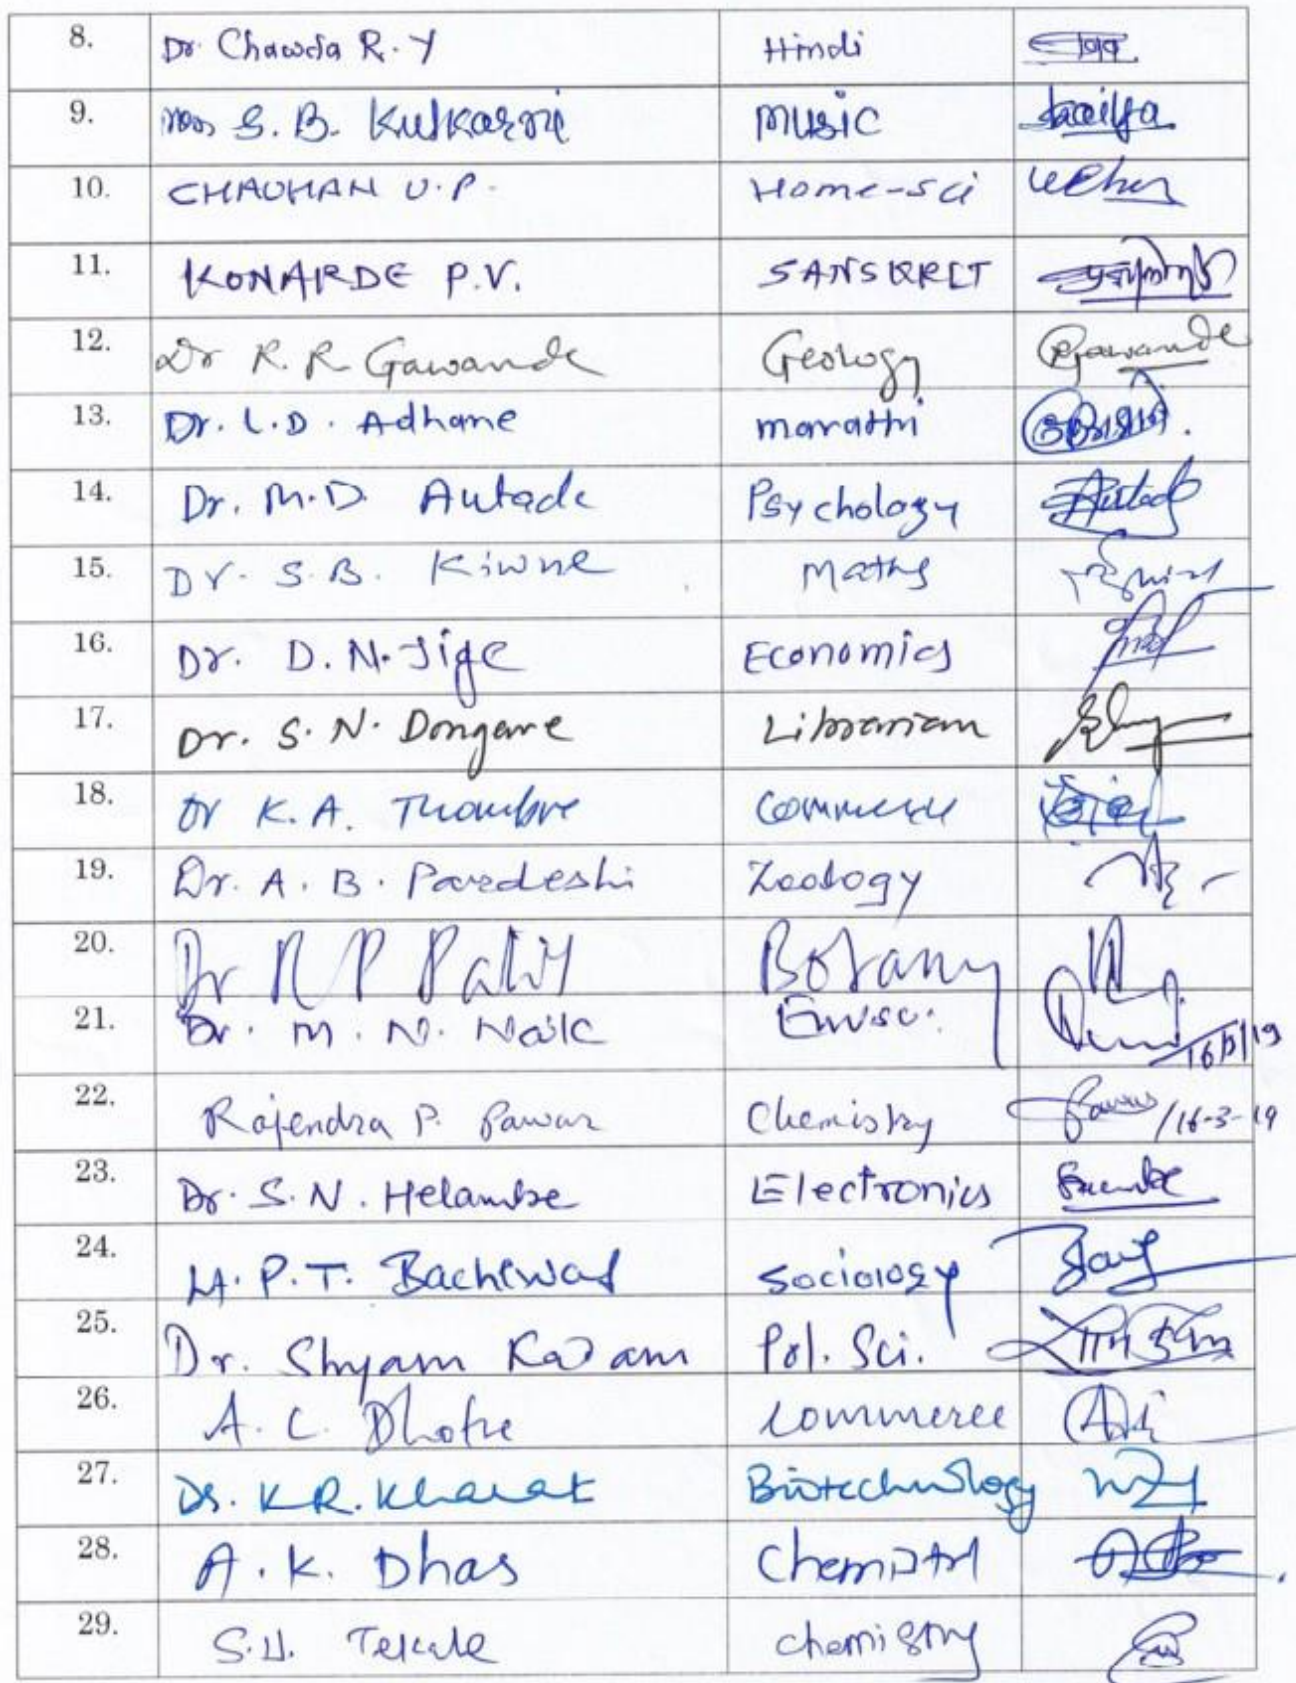 8. Dr. Chawda R. Y Hindi
9. Mrs S. B. Kulkarni Music
10. CHAUHAN U.P. Home-sci
11. KONARDE P.V. SANSKRIT
12. Dr R. R. Gawande Geology Gawande
13. Dr. L.D. Adhane marathi
14. Dr. M.D. Autade Psychology Autade
15. Dr. S.B. Kiwne Maths
16. Dr. D. N. Jige Economics
17. Dr. S. N. Dongare Librarian
18. Dr K. A. Thombre Commerce
19. Dr. A. B. Pardeshi Zoology
20. Dr R P Patil Botany
21. Dr. M. N. Naik Envsc. 16/3/19
22. Rajendra P. Pawar Chemistry /16-3-19
23. Dr. S. N. Helambe Electronics
24. P. T. Bachewad Sociology
25. Dr. Shyam Kadam Pol. Sci.
26. A. C. Dhotre Commerce
27. Dr. K.R. Kharat Biotechnology
28. A. K. Dhas Chemistry
29. S.U. Tekale chemistry